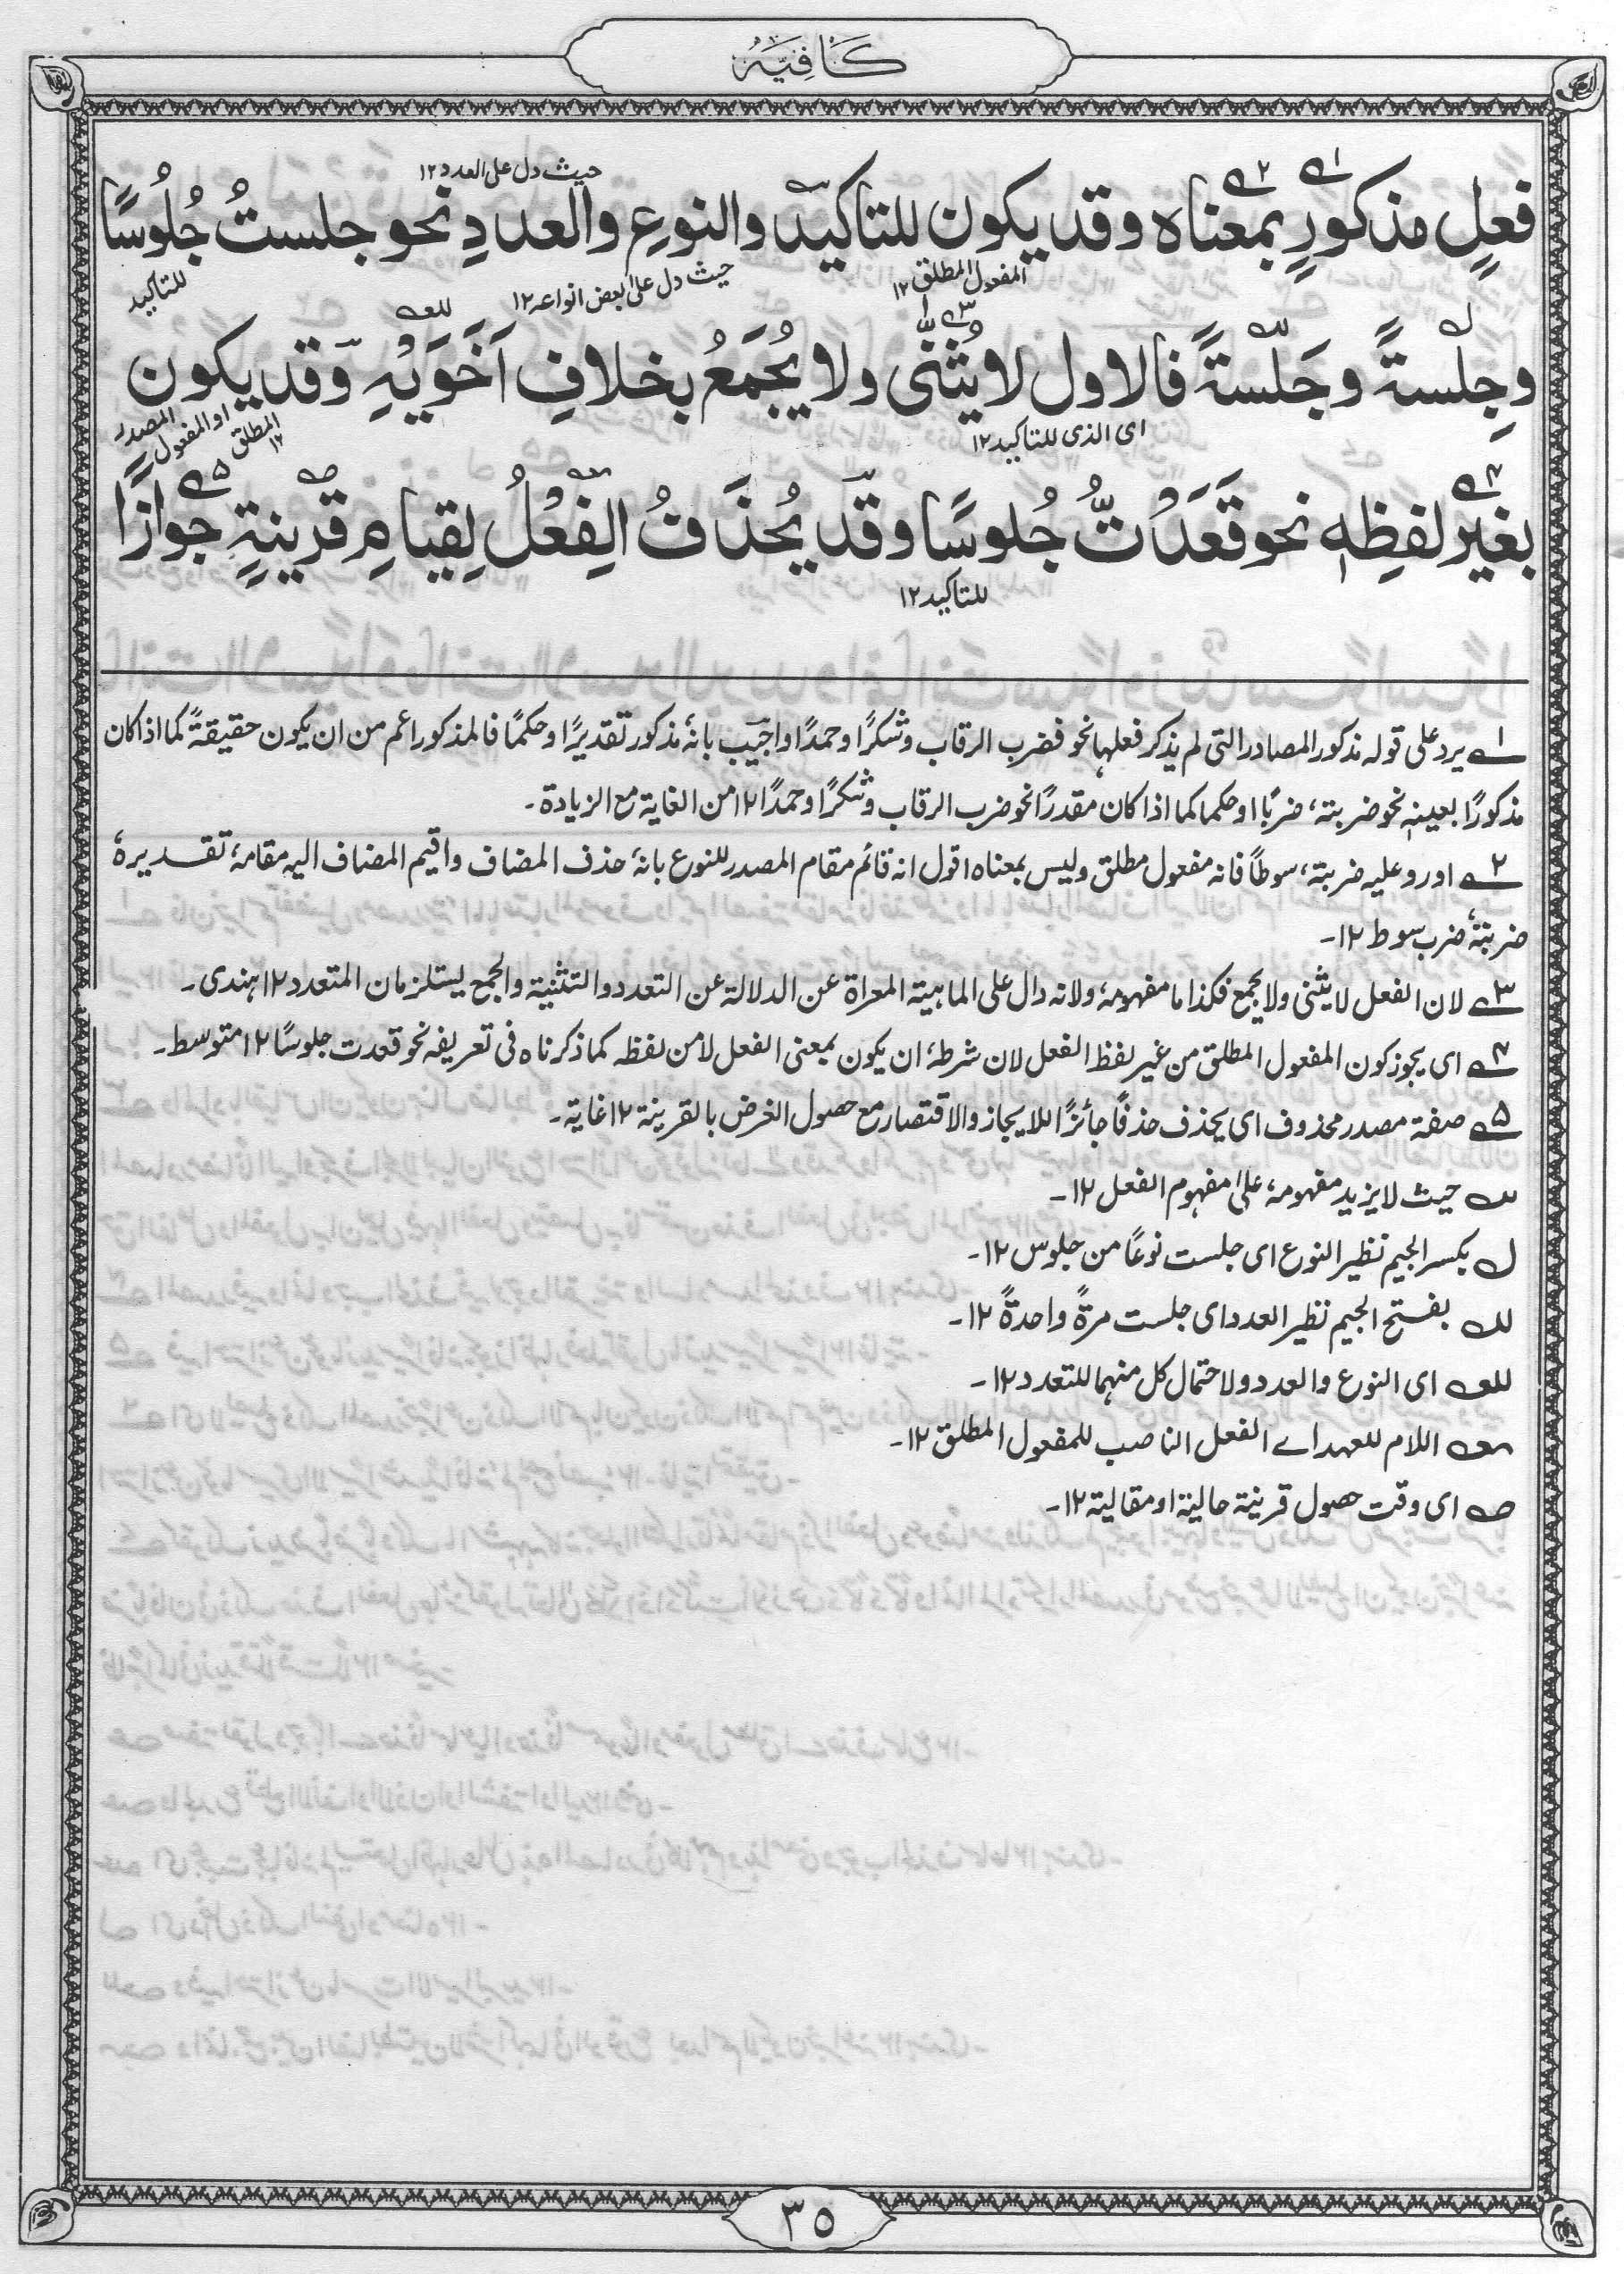 كَافِيَه
حيث دل على العدد ١٢
فعلٍ مذكورٍ بمعناه وقد يكون للتاكيد والنوعِ والعددِ نحو جلستُ جُلُوسًا
المفعول المطلق ١٢ حيث دل على بعض انواعه ١٢ للتاكيد
وجِلسةً وجَلسةً فالاول لا يُثنّٰى ولا يُجمَعُ بخلافِ اَخَوَيْهِ وقد يكون
اى الذى للتاكيد ١٢ المصدر او المفعول المطلق ١٢
بغير لفظِهٖ نحو قَعَدْتُّ جُلوسًا وقد يُحذَفُ الفِعْلُ لِقيامِ قرينةٍ جوازًا
للتاكيد ١٢
١ يرد على قوله مذكور المصادر التى لم يذكر فعلها نحو فضرب الرقاب وشكرًا وحمدًا واجيب بانه مذكور تقديرًا وحكمًا فالمذكور اعم من ان يكون حقيقةً كما اذا كان
مذكورًا بعينه نحو ضربته ضربًا او حكما كما اذا كان مقدرًا نحو ضرب الرقاب وشكرًا وحمدًا ١٢ من الغاية مع الزيادة۔
٢ اورد عليه ضربته سوطاً فانه مفعول مطلق وليس بمعناه اقول انه قائم مقام المصدر للنوع بانه حذف المضاف واقيم المضاف اليه مقامه تقديره
ضربته ضرب سوط ١٢۔
٣ لان الفعل لا يثنى ولا يجمع فكذا ما مفهومه ولانه دال على الماهية المعراة عن الدلالة عن التعدد والتثنية والجمع يستلزمان المتعدد ١٢ هندى۔
٤ اى يجوز كون المفعول المطلق من غير لفظ الفعل لان شرطه ان يكون بمعنى الفعل لا من لفظه كما ذكرناه فى تعريفه نحو قعدت جلوسًا ١٢ متوسط۔
٥ صفة مصدر محذوف اى يحذف حذفًا جائزًا للايجاز والاقتصار مع حصول الغرض بالقرينة ١٢ غاية۔
حيث لا يزيد مفهومه على مفهوم الفعل ١٢۔
ل بكسر الجيم نظير النوع اى جلست نوعًا من جلوس ١٢۔
لله بفتح الجيم نظير العدد اى جلست مرةً واحدةً ١٢۔
للعه اى النوع والعدد ولاحتمال كل منهما للتعدد ١٢۔
اللام للعهد اے الفعل الناصب للمفعول المطلق ١٢۔
صه اى وقت حصول قرينة حالية او مقالية ١٢۔
٣٥